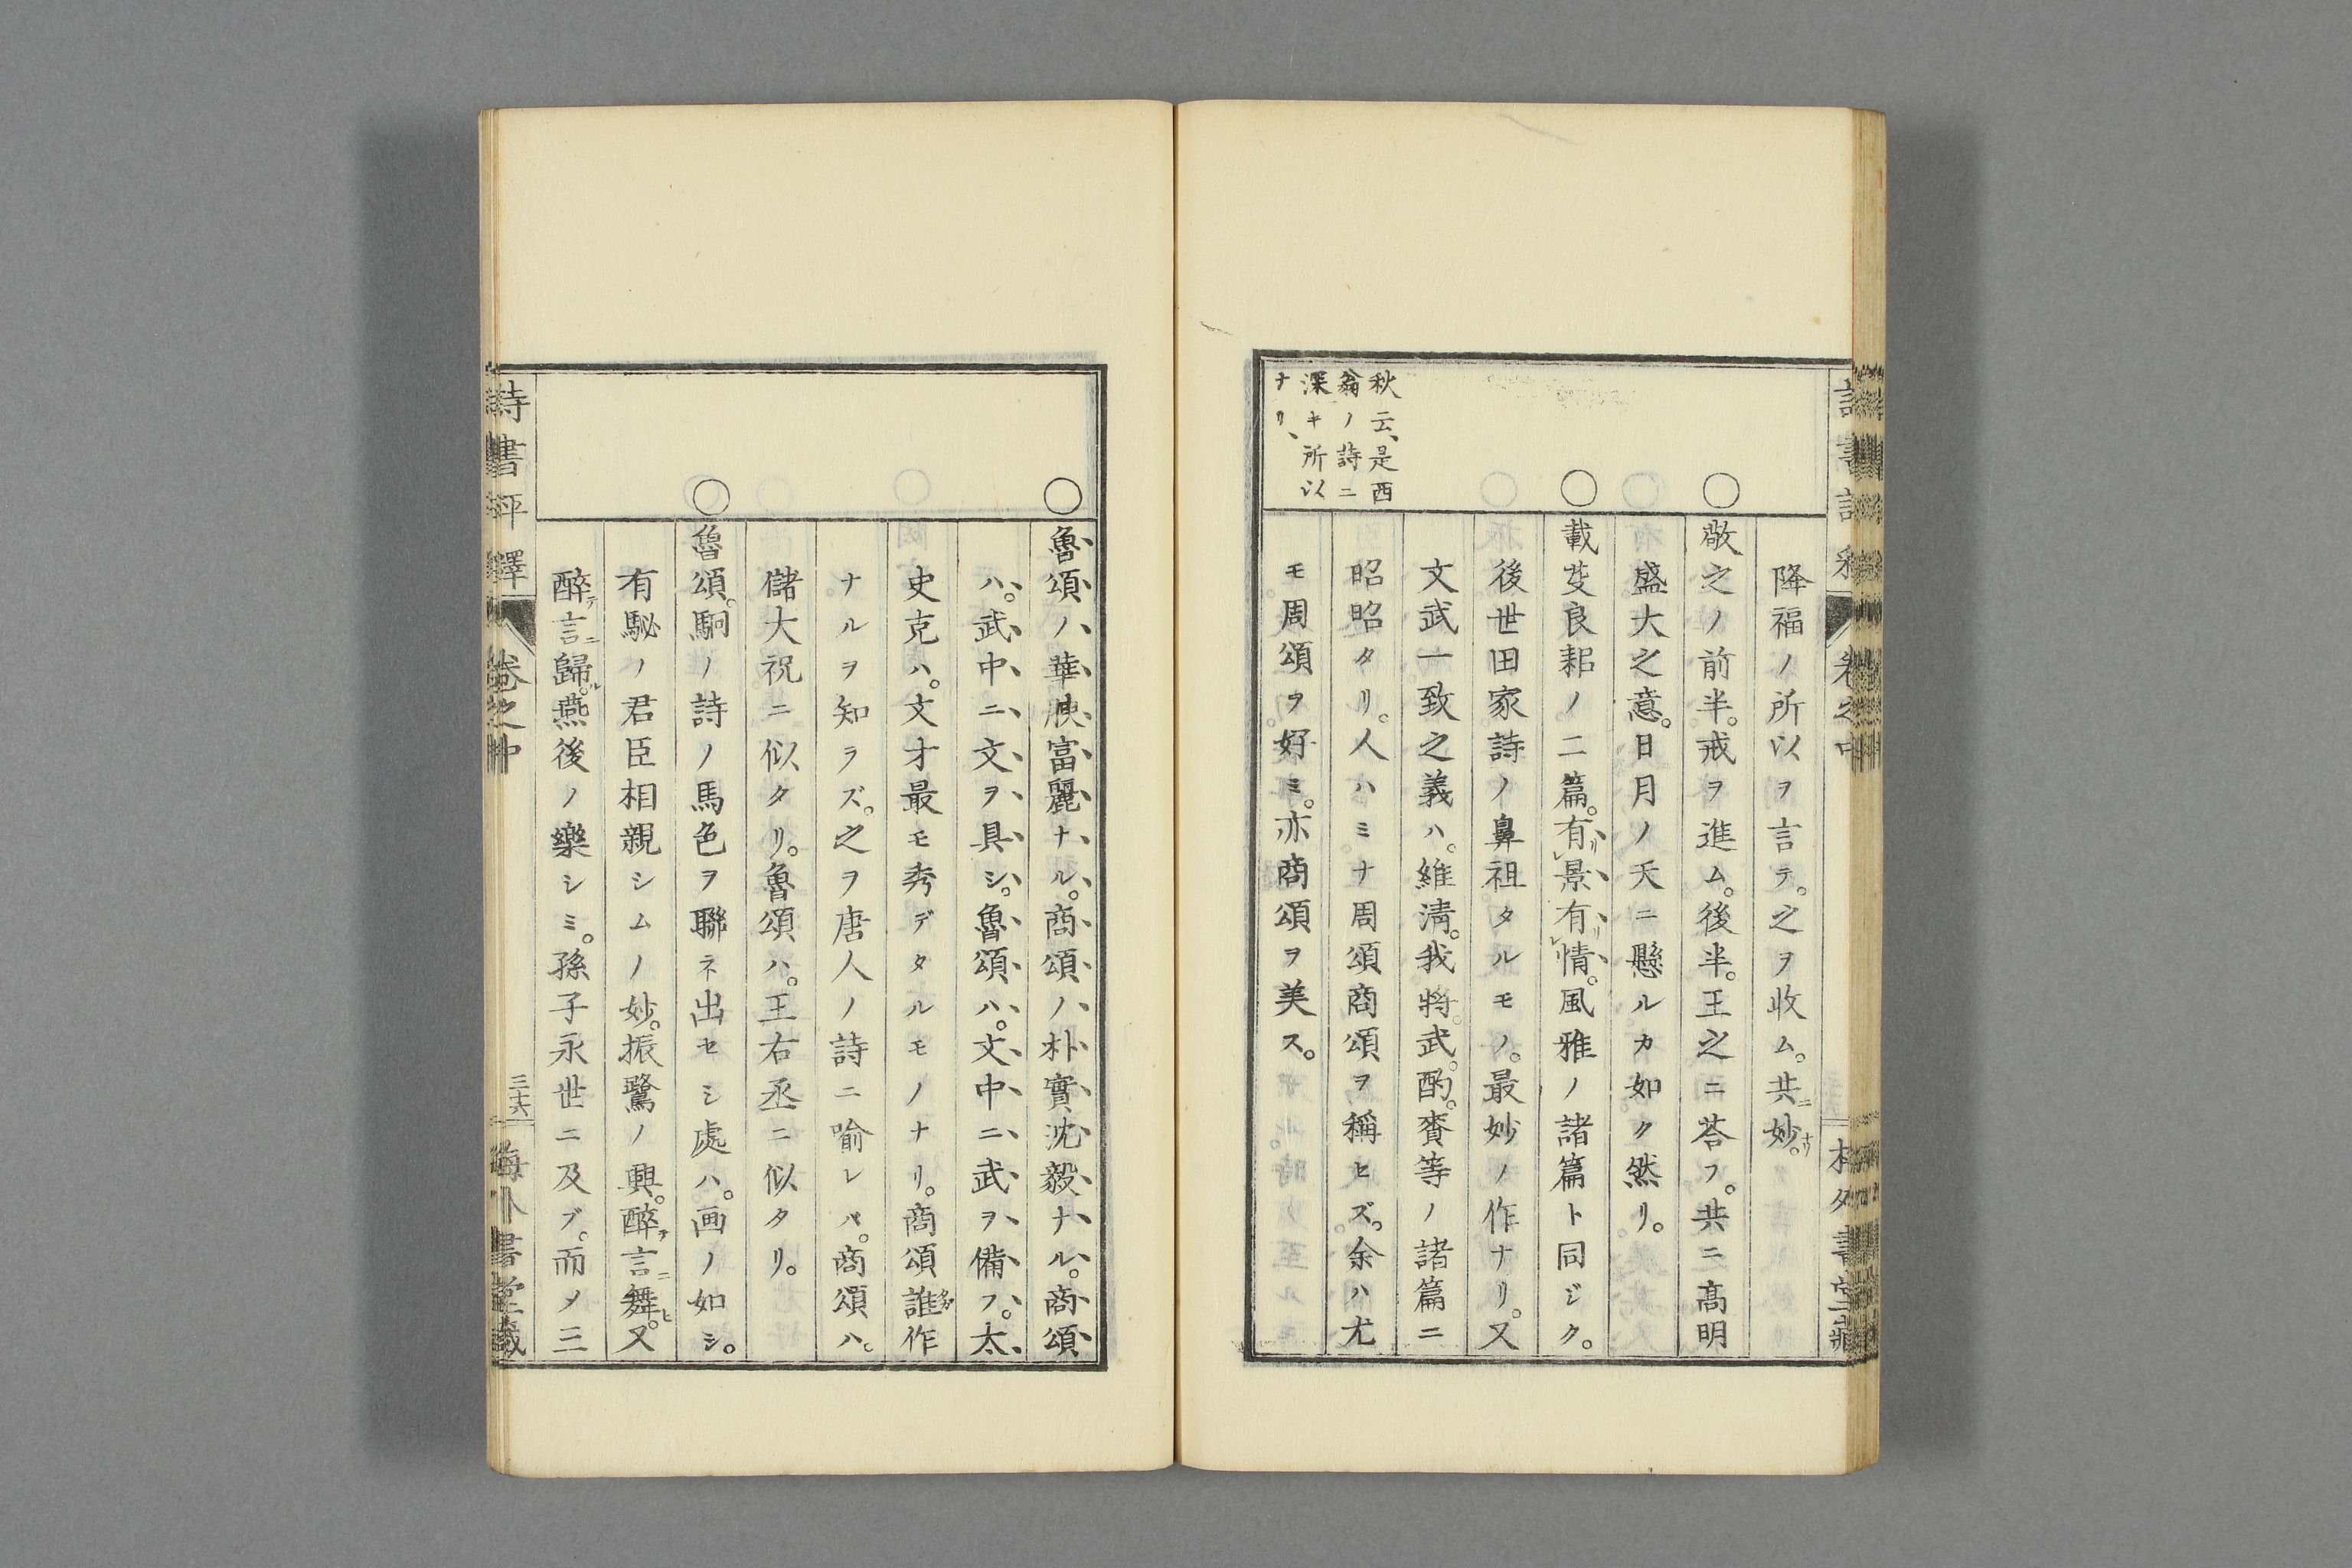 降福ノ所以ヲ言テ。之ヲ收ム。共ニ妙。ナリ
敬之ノ前半。戒ヲ進ム。後半。王之ニ荅フ。共ニ髙明
盛大之意。日月ノ天ニ懸ルカ如ク然リ。
載芟良耜ノ二篇。有リレ景有リレ情。風雅ノ諸篇ト同ジク。
後世田家詩ノ鼻祖タルモノ。最妙ノ作ナリ。又
文武一致之義ハ。維清。我將。武。酌。賚等ノ諸篇ニ
昭昭タリ。人ハミナ周頌商頌ヲ稱ヒズ。余ハ尤
モ周頌ヲ好ミ。亦商頌ヲ美ス。
秋云、是西
翁ノ詩ニ
深キ所以
ナリ、
魯頌ノ華腴富麗ナル。商頌ノ朴實沈毅ナル。商頌
ハ。武中ニ文ヲ具シ。魯頌ハ。文中ニ武ヲ備フ。太
史克ハ。文才最モ秀デタルモノナリ。商頌誰作
ナルヲ知ラズ。之ヲ唐人ノ詩ニ喩レバ。商頌ハ。
儲大祝ニ似タリ。魯頌ハ。王右丞ニ似タリ。
魯頌。駉ノ詩ノ馬色ヲ聯ネ出セシ處ハ。画ノ如シ。
有駜ノ君臣相親シムノ妙。振鷺ノ興。醉テ言ニ舞ヒ。又
醉テ言ニ歸ル。燕後ノ樂シミ。孫子永世ニ及ブ。而メ三
詩書評釋 卷之中 三十六 海外書堂藏